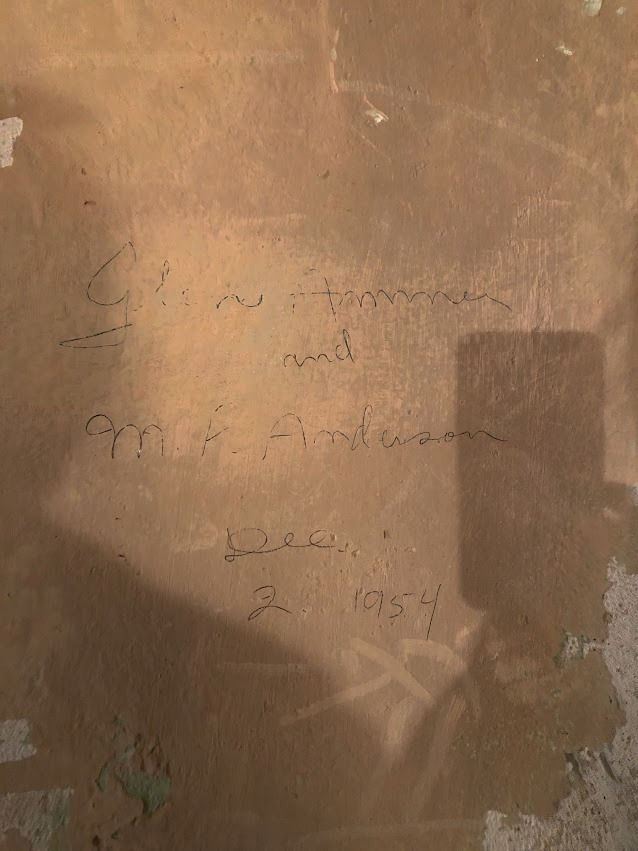 Glen
and
M. F. Anderson
Dec.
2 1954